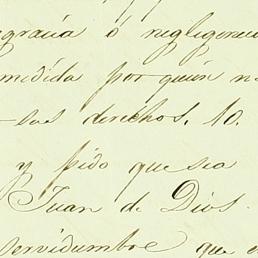 gracia ó negligencia
medida por quien n
sus derechos, lo.
y pido que sea
Juan de Dios.
servidumbre que e